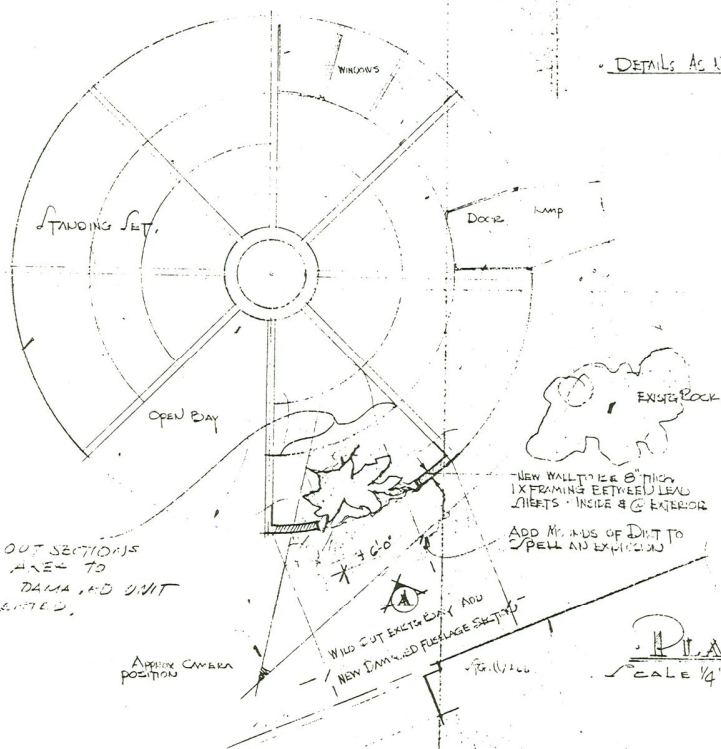 DETAILS AS
WINDOWS
STANDING SET.
DOOR
RAMP
OPEN BAY
EXISTG ROCK
NEW WALL TO BE 8" THICK
1X FRAMING BETWEEN LEAD
SHEETS · INSIDE & @ EXTERIOR
ADD MOUNDS OF DIRT TO
SPELL AN EXPLOSION
6'-0"
OUT SECTIONS
TO
UNIT
A
WILD OUT EXISTG BAY ADD
NEW DAMAGED FUSELAGE SECTION
APPROX CAMERA
POSITION
PLA
SCALE 1/4"